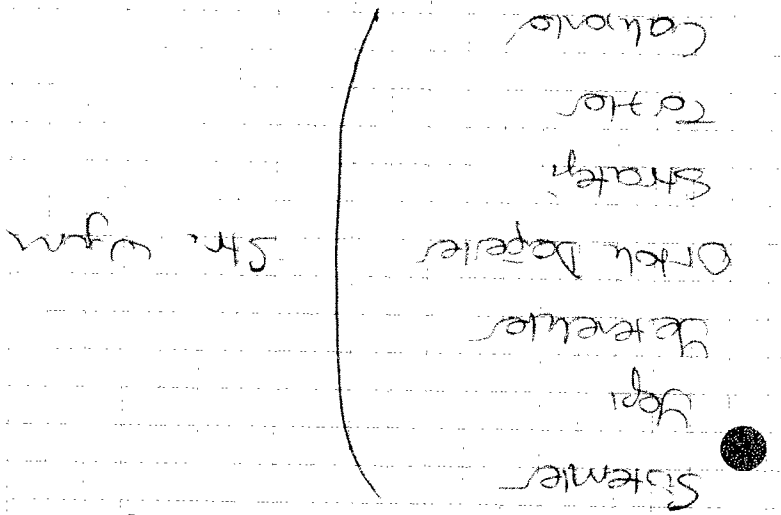 Sistemler
Yapı
Yetenekler
Ortak Değerler
Str. uyum
Strateji
Tarz
Çalışanlar